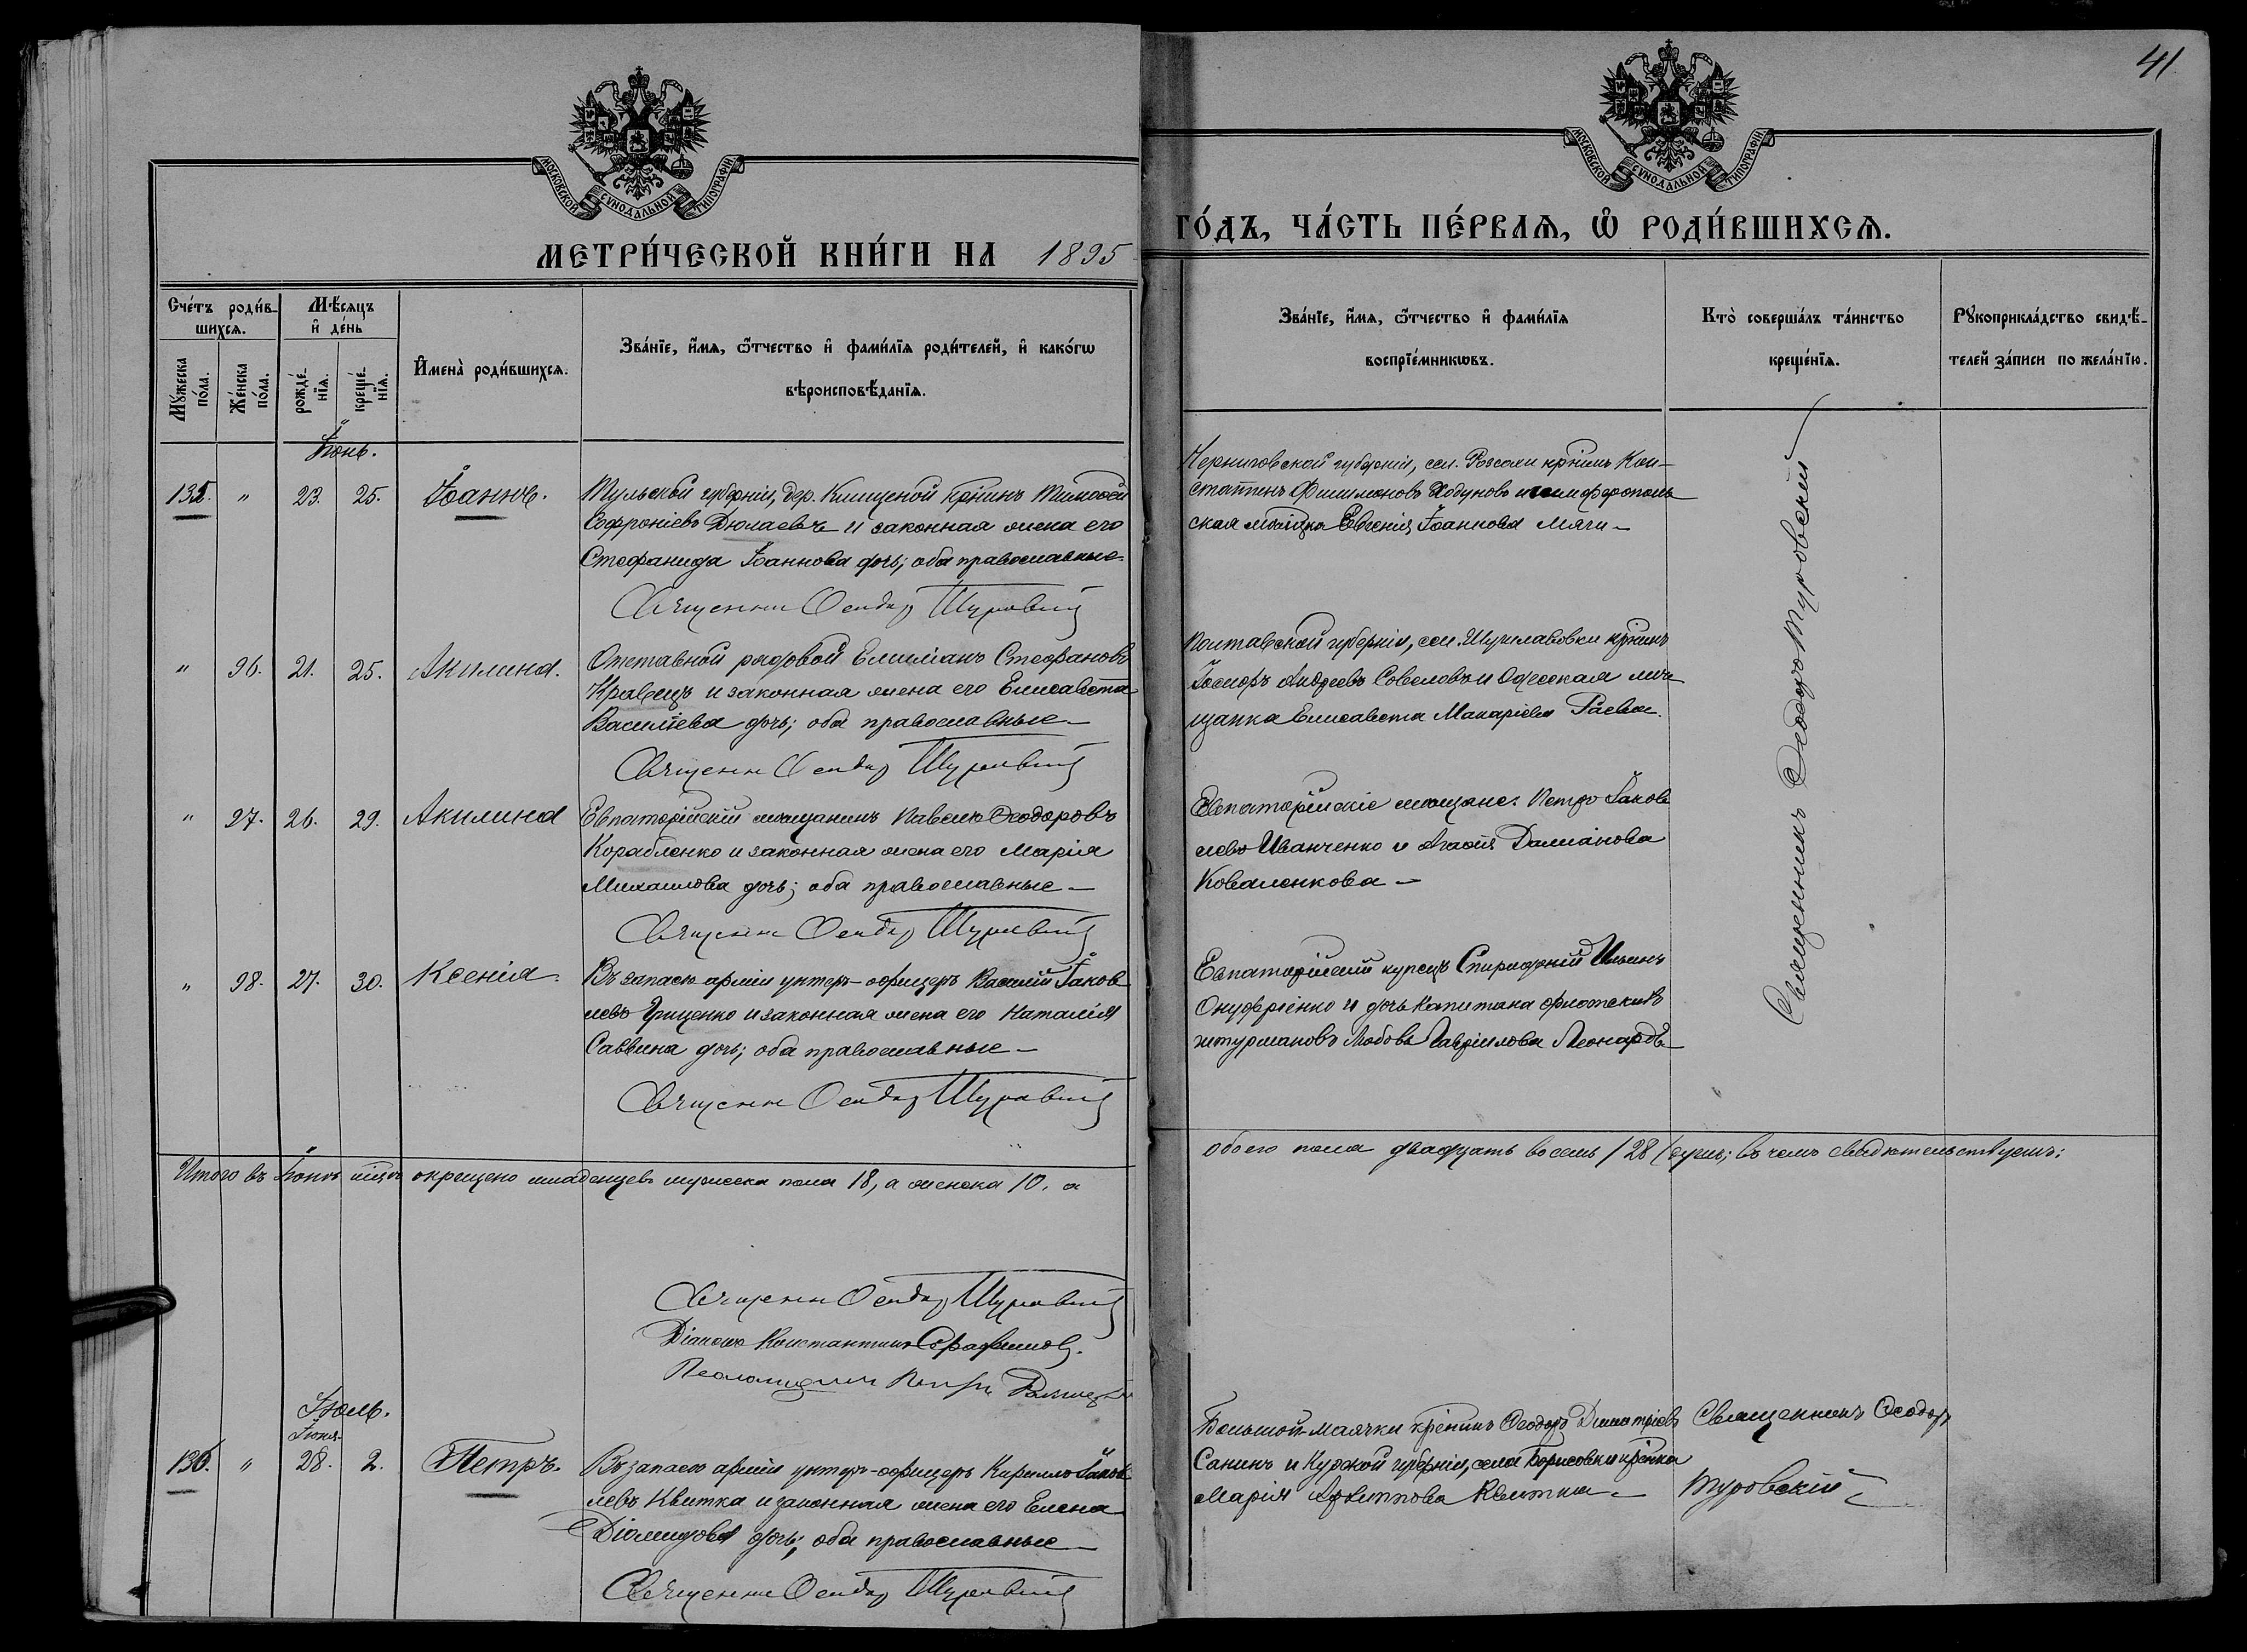 41
МОСКОВСКОЙ СУНОДАЛЬНОЙ ТИПОГРАФІИ
МОСКОВСКОЙ СУНОДАЛЬНОЙ ТИПОГРАФІИ
МЕТРИ́ЧЕСКОЙ КНИ́ГИ НА 1895
ГО́ДЪ, ЧА́СТЬ ПЕ́РВАѦ, Ѽ РОДИ́ВШИХСѦ.
Сче́тъ роди́в-
шихсѧ.
Мѣ́сѧцъ
и҆ де́нь
Мꙋ́жеска по́ла.
Же́нска по́ла.
рожде́-
нїѧ.
креще́-
нїѧ.
И҆мена̀ роди́вшихсѧ.
Зва́нїе, и҆́мѧ, ѻ҆́тчество и҆ фами́лїѧ роди́телей, и҆ како́гѡ
вѣроисповѣ́данїѧ.
Зва́нїе, и҆́мѧ, ѻ҆́тчество и҆ фами́лїѧ
воспрїе́мникѡвъ.
Кто̀ соверша́лъ та́инство
креще́нїѧ.
Рꙋкоприкла́дство свидѣ́-
телей за́писи по жела́нїю.
Іюнь.
135. " 23. 25. Іоаннъ.
Тульской губерніи, дер. крнинъ Тимоѳей
Софроніевъ Дюлаевъ и законная жена его
Стефанида Іоаннова дочь; оба православные
Священникъ Ѳеодоръ Туровскій
Черниговской губерніи, сел. Рогсохи крнинъ Кон-
стантинъ Филимоновъ Ходуновъ и симферополь
ская мѣщанка Евгенія Іоаннова
" 96. 21. 25. Акилина.
Отставной рядовой Емиліанъ Стефановъ
Кравецъ и законная жена его Елисавета
Василіева дочь; оба православные
Священникъ Ѳеодоръ Туровскій
Полтавской губерніи, сел. крнинъ
Іосифъ Андреевъ Совеловъ и Одесская мѣ
щанка Елисавета Макаріева Раевск.
" 97. 26. 29. Акилина
Евпаторійскій мѣщанинъ Павелъ Ѳеодоровъ
Корабленко и законная жена его Марія
Михаилова дочь; оба православные
Священникъ Ѳеодоръ Туровскій
Евпаторійскіе мѣщане: Петръ Іаков
левъ Иванченко и Агаѳія Даміанова
Коваленкова
" 98. 27. 30. Ксенія.
Въ запасѣ арміи унтеръ-офицеръ Василій Іаков
левъ Гриценко и законная жена его Наталія
Саввина дочь; оба православные
Священникъ Ѳеодоръ Туровскій
Евпаторійскій купецъ Спиридонъ Ильинъ
Онуфріенко и дочь капитана флотскихъ
штурмановъ Любовь Гавріилова Леонардъ
Священникъ Ѳеодоръ Туровскій
Итого въ Іюнѣ мцѣ окрещено младенцевъ мужеска пола 18, а женска 10, а
обоего пола двадцать восемь /28/ душъ; въ чемъ свидѣтельствуемъ:
Священникъ Ѳеодоръ Туровскій
Діаконъ Константинъ Серафимовъ.
Псаломщикъ
Іюль.
Іюня
136. " 28. 2. Петръ.
Въ запасѣ арміи унтеръ-офицеръ Кириллъ Іаков
левъ Квитка и законная жена его Елена
Діомидова дочь; оба православные
Священникъ Ѳеодоръ Туровскій
Большой-Маячки крнинъ Ѳеодоръ Димитріевъ
Санинъ и Курской губерніи, села Борисовки крнка
Марія Архиппова Квитка
Священникъ Ѳеодоръ
Туровскій